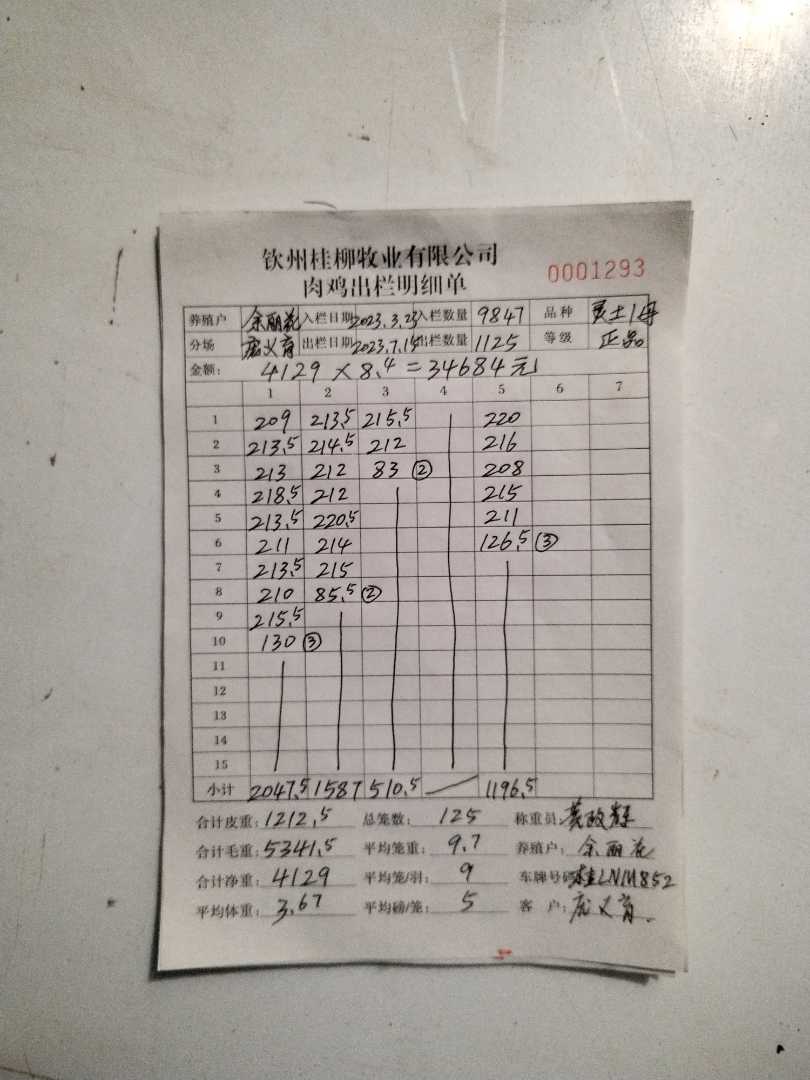 钦州桂柳牧业有限公司
肉鸡出栏明细单
0001293
养殖户 余丽花 入栏日期 2023.3.23 入栏数量 9847 品种 土1母
分场 庞义育 出栏日期 2023.7.15 出栏数量 1125 等级 正品
金额: 4129 × 8.4 = 34684元
1 2 3 4 5 6 7
1 209 213.5 215.5 220
2 213.5 214.5 212 216
3 213 212 83 ② 208
4 218.5 212 215
5 213.5 220.5 211
6 211 214 126.5 ③
7 213.5 215
8 210 85.5 ②
9 215.5
10 130 ③
11
12
13
14
15
小计 2047.5 1587 510.5 1196.5
合计皮重: 1212.5 总笼数: 125 称重员: 黄政
合计毛重: 5341.5 平均笼重: 9.7 养殖户: 余丽花
合计净重: 4129 平均笼/羽: 9 车牌号码: 桂LNM852
平均体重: 3.67 平均磅/笼: 5 客 户: 庞义育